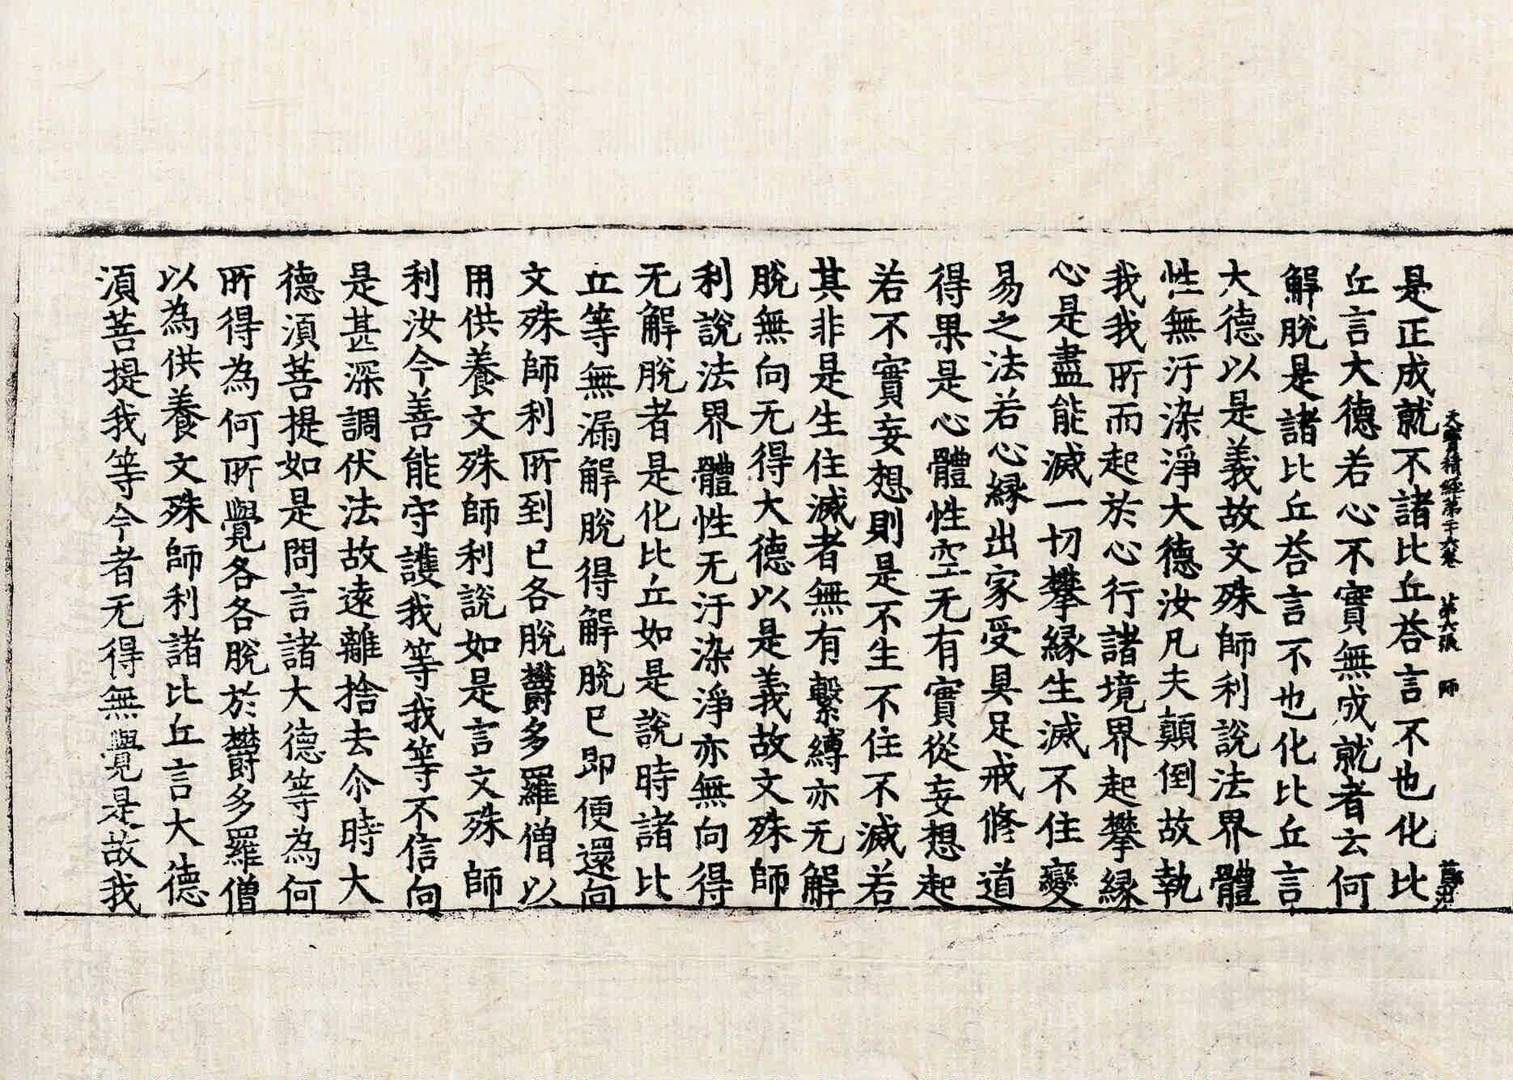 大寶積經第二十六卷 第六張 師
是正成就不諸比丘荅言不也化比
丘言大德若心不實無成就者云何
解脫是諸比丘荅言不也化比丘言
大德以是義故文殊師利說法界體
性無汙染淨大德汝凡夫顛倒故執
我我所而起於心行諸境界起攀縁
心是盡能滅一切攀縁生滅不住變
易之法若心縁出家受具足戒修道
得果是心體性空无有實從妄想起
若不實妄想則是不生不住不滅若
其非是生住滅者無有繫縛亦无解
脫無向无得大德以是義故文殊師
利說法界體性无汙染淨亦無向得
无解脫者是化比丘如是說時諸比
丘等無漏解脫得解脫已即便還向
文殊師利所到已各脫鬱多羅僧以
用供養文殊師利說如是言文殊師
利汝今善能守護我等我等不信向
是甚深調伏法故遠離捨去尒時大
德湏菩提如是問言諸大德等為何
所得為何所覺各各脫於鬱多羅僧
以為供養文殊師利諸比丘言大德
湏菩提我等今者无得無覺是故我